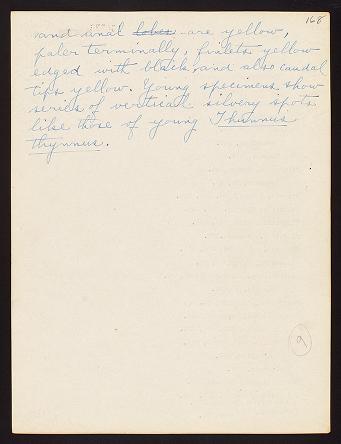 168
and anal lobes are yellow,
paler terminally, finlets yellow
edged with black, and also caudal
tips yellow. Young specimens show
series of vertical silvery spots
like those of young Thunnus
thynnus.
9